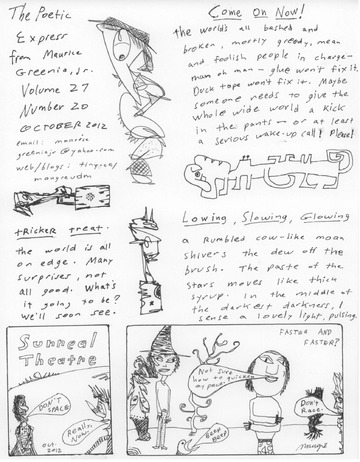 The Poetic
Express
from Maurice
Greenia, Jr.
Volume 27
Number 20
OCTOBER 2012
email: maurice
greeniajr@yahoo.com
web/blogs: tiny.cc/
maugreudm
Come On Now!
the world's all bashed and
broken, mostly greedy, mean
and foolish people in charge-
man oh man - glue won't fix it.
Duck tape won't fix it. Maybe
someone needs to give the
whole wide world a kick
in the pants - or at least
a serious wake-up call! Please!
tRicker treat.
the world is all
on edge. Many
surprises, not
all good. What's
it going to be?
we'll soon see.
Lowing, Slowing, Glowing
a Rumbled cow-like moon
shivers the dew off the
brush. The paste of the
stars moves like thick
syrup. In the middle of
the darkest darkness, I
sense a lovely light, pulsing.
Surreal
Theatre
DON'T
SPACE
Really,
Now!
Oct.
2012
FASTER AND
FASTER?
Not sure
how to
Beep
Beep
Don't
Race.